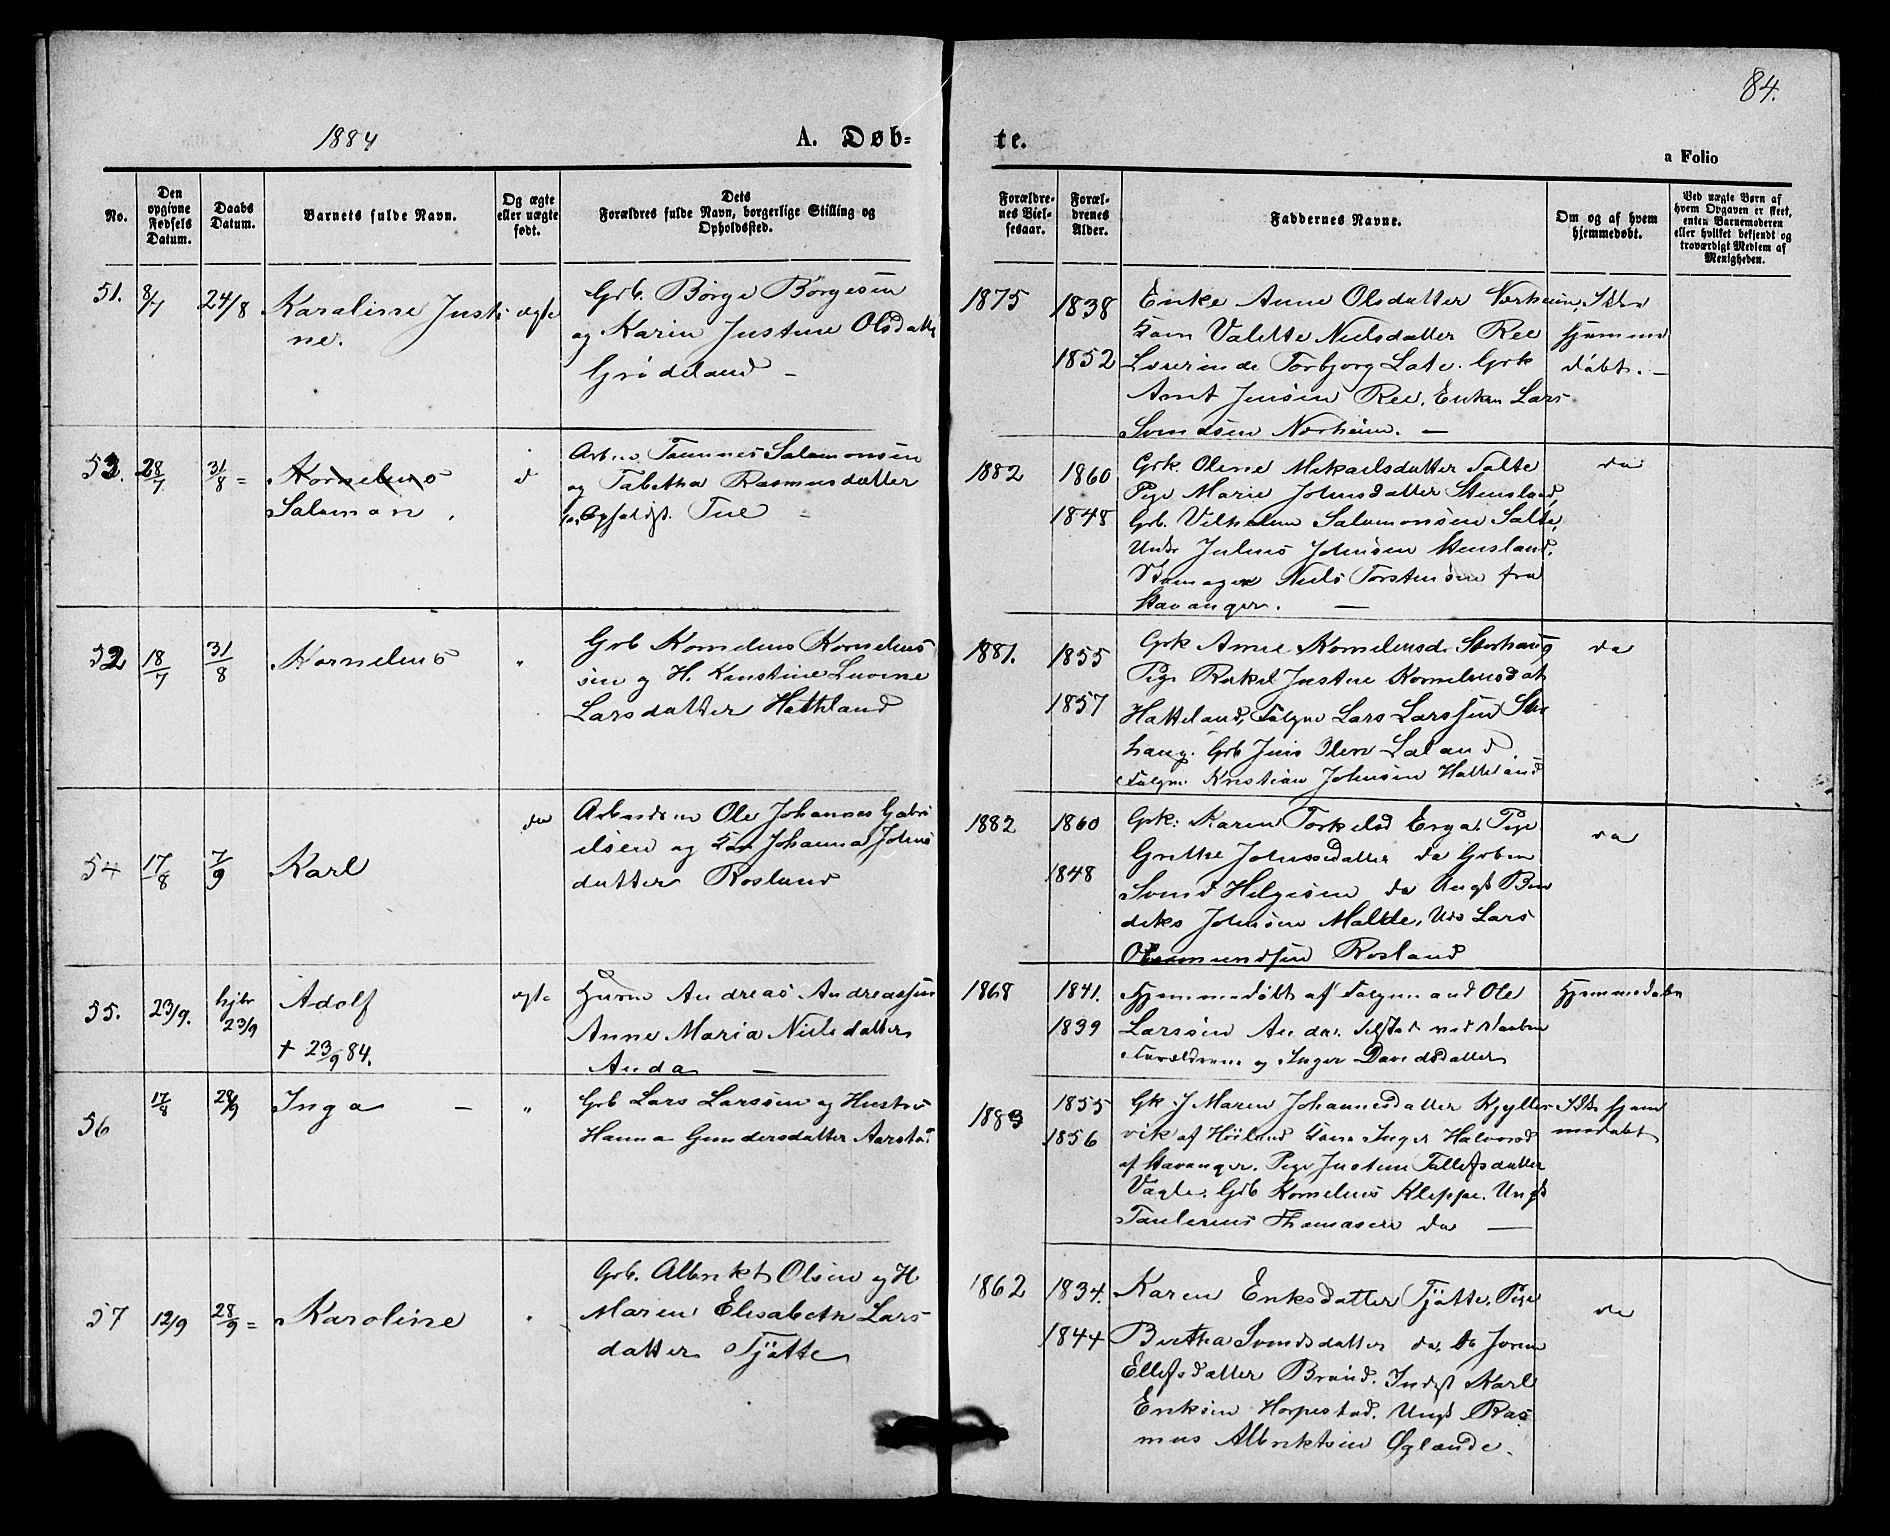 84.
1884
A. Døb-
te.
a Folio
No.
Den opgivne Fødsels Datum.
Daabs Datum.
Barnets fulde Navn.
Og ægte eller uægte født.
Dets Forældres fulde Navn, borgerlige Stilling og Opholdssted.
Forældrenes Vielsesaar.
Forældrenes Alder.
Faddernes Navne.
Om og af hvem hjemmedøbt.
Ved uægte Børn af hvem Opgaven er skeet, enten Barnemoderen eller hvilket bekjendt og troværdigt Medlem af Menigheden.
51. 8/7 24/8 Karoline Justi- ægte
ne.
Grb. Børge Børgesen
og Karin Justine Olsdatt
Grødeland –
1875 1838
1852
Enke Anne Olsdatter Nærheim,
Kone Valette Nielsdatter Ree
Lovrinde Torbjorg Late. Grk
Arnt Jensen Ree. Enkem Lars
Svendsen Nærheim. –
Ikke
hjemme
døbt. –
53. 28/7 31/8 = Kornelius
Salamon.
d
Arb Tønnes Salomonsen
og Tabetha Rasmusdatter
Opholdst. Tue –
1882 1860
1848
Grk. Oline Mikaelsdatter Salte
Pige Marie Johnsdatter Stensland,
Grb. Vilhelm Salomonsen Salte,
Undr Julius Johnsen Stensland.
Niels Torstensen fra
Stavanger. –
da
52 18/7 31/8 Kornelius "
Grb Kornelius Kornelius
sen og H. Karstine Lovine
Larsdatter Hatteland
1881. 1855
1857
Grk Anne Korneliusd. Storhaug
Pige Rakel Justine Korneliusdat
Hatteland, Følgm Lars Larssen Stor
haug. Grb Jens Olen Laland
Følgm Kristian Johnsen Hatteland
da
54 17/8 7/9 Karl da
Arbeidsm Ole Johannes Gabri
elsen og Kon Johanna Johns
datter Rosland
1882 1860
1848
Grk: Karen Torkelsd Erga. Pige
Grethe Johnsdatter da Grbm
Svend Helgesen da Ungk Ben
diks Johnsen Malde, Lars
Rosland
da
55. 23/9. hjbr 23/9 Adolf ægte
+ 23/9 84.
Husm Andreas Andreassen
Anne Maria Nielsdatter
Anda –
1868 1841.
1839
Hjemmedøbt af Følgemand Ole
Larsen Anda. Tilsted ved Daaben
Forældrene og Inger Davidsdatter
Hjemmedøbt
56 17/8 28/9 Inga – "
Grb Lars Larssen og Hustru
Hanna Gundersdatter Aarstad
1883 1855
1856
Gk J Maren Johannesdatter Kjylles
vik af Høiland Kone Inger Halvorsd
af Stavanger. Pige Justine Tollefsdatter
Vagle. Grb Kornelius Kleppe. Ungk
Taulerius Thomasen da –
Ikke hjem
medøbt
57 12/9 28/9 = Karoline
Grb. Albrikt Olsen og H
Maren Elisabeth Lars
datter Tjøtte
1862 1834.
1844
Karen Eriksdatter Tjøtte. Pige
Bertha Svendsdatter da. da Joren
Ellefsdatter Braud. Indst Karl
Eriksen Horpestad. Ungk Ras
mus Albriktsen Øglænde.
da